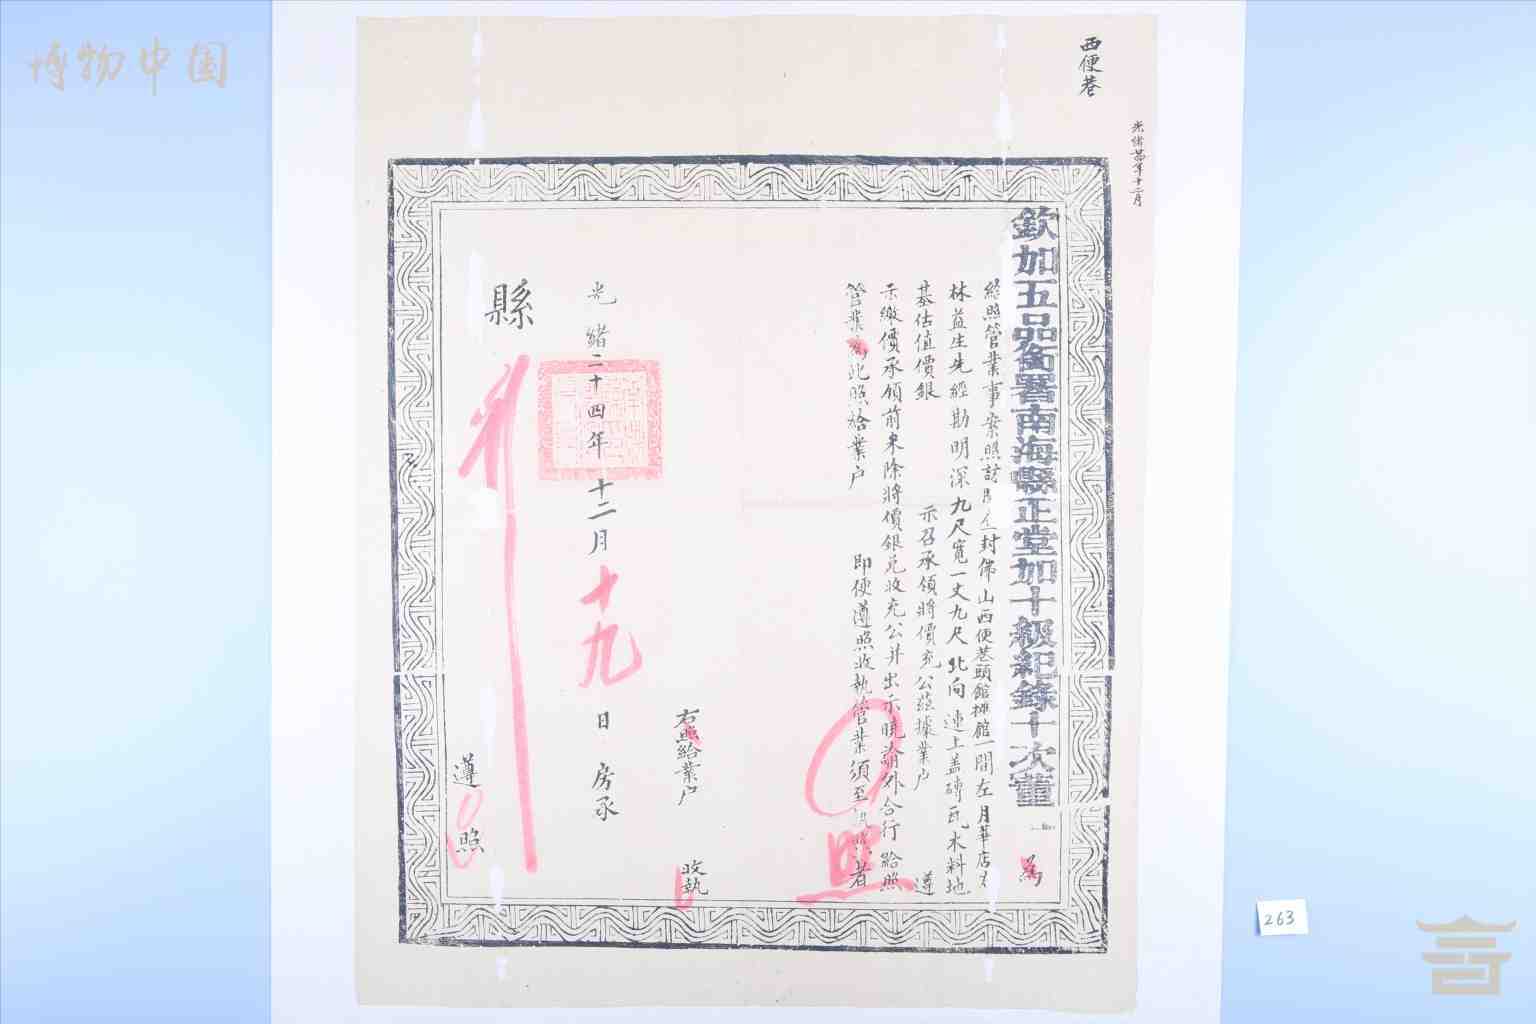 博物中国
西便巷
光緒廿四年十二月
欽加五品銜署南海縣正堂加十級紀錄十次董
為
給照管業事案照訪封佛山西便巷頭館攤館一間左月華店
林益生先經勘明深九尺寬一丈九尺北向連上盖磚瓦木料地
基估值價銀 示召承領將價充公茲據業户 遵
示繳價承領前來除將價銀兌收充公并出示曉諭外合行給照
管業為此照給業户 即便遵照收執管業須至執照者
照
右照給業户 收執
光緒二十四年十二月十九日 房承
縣
遵照
263